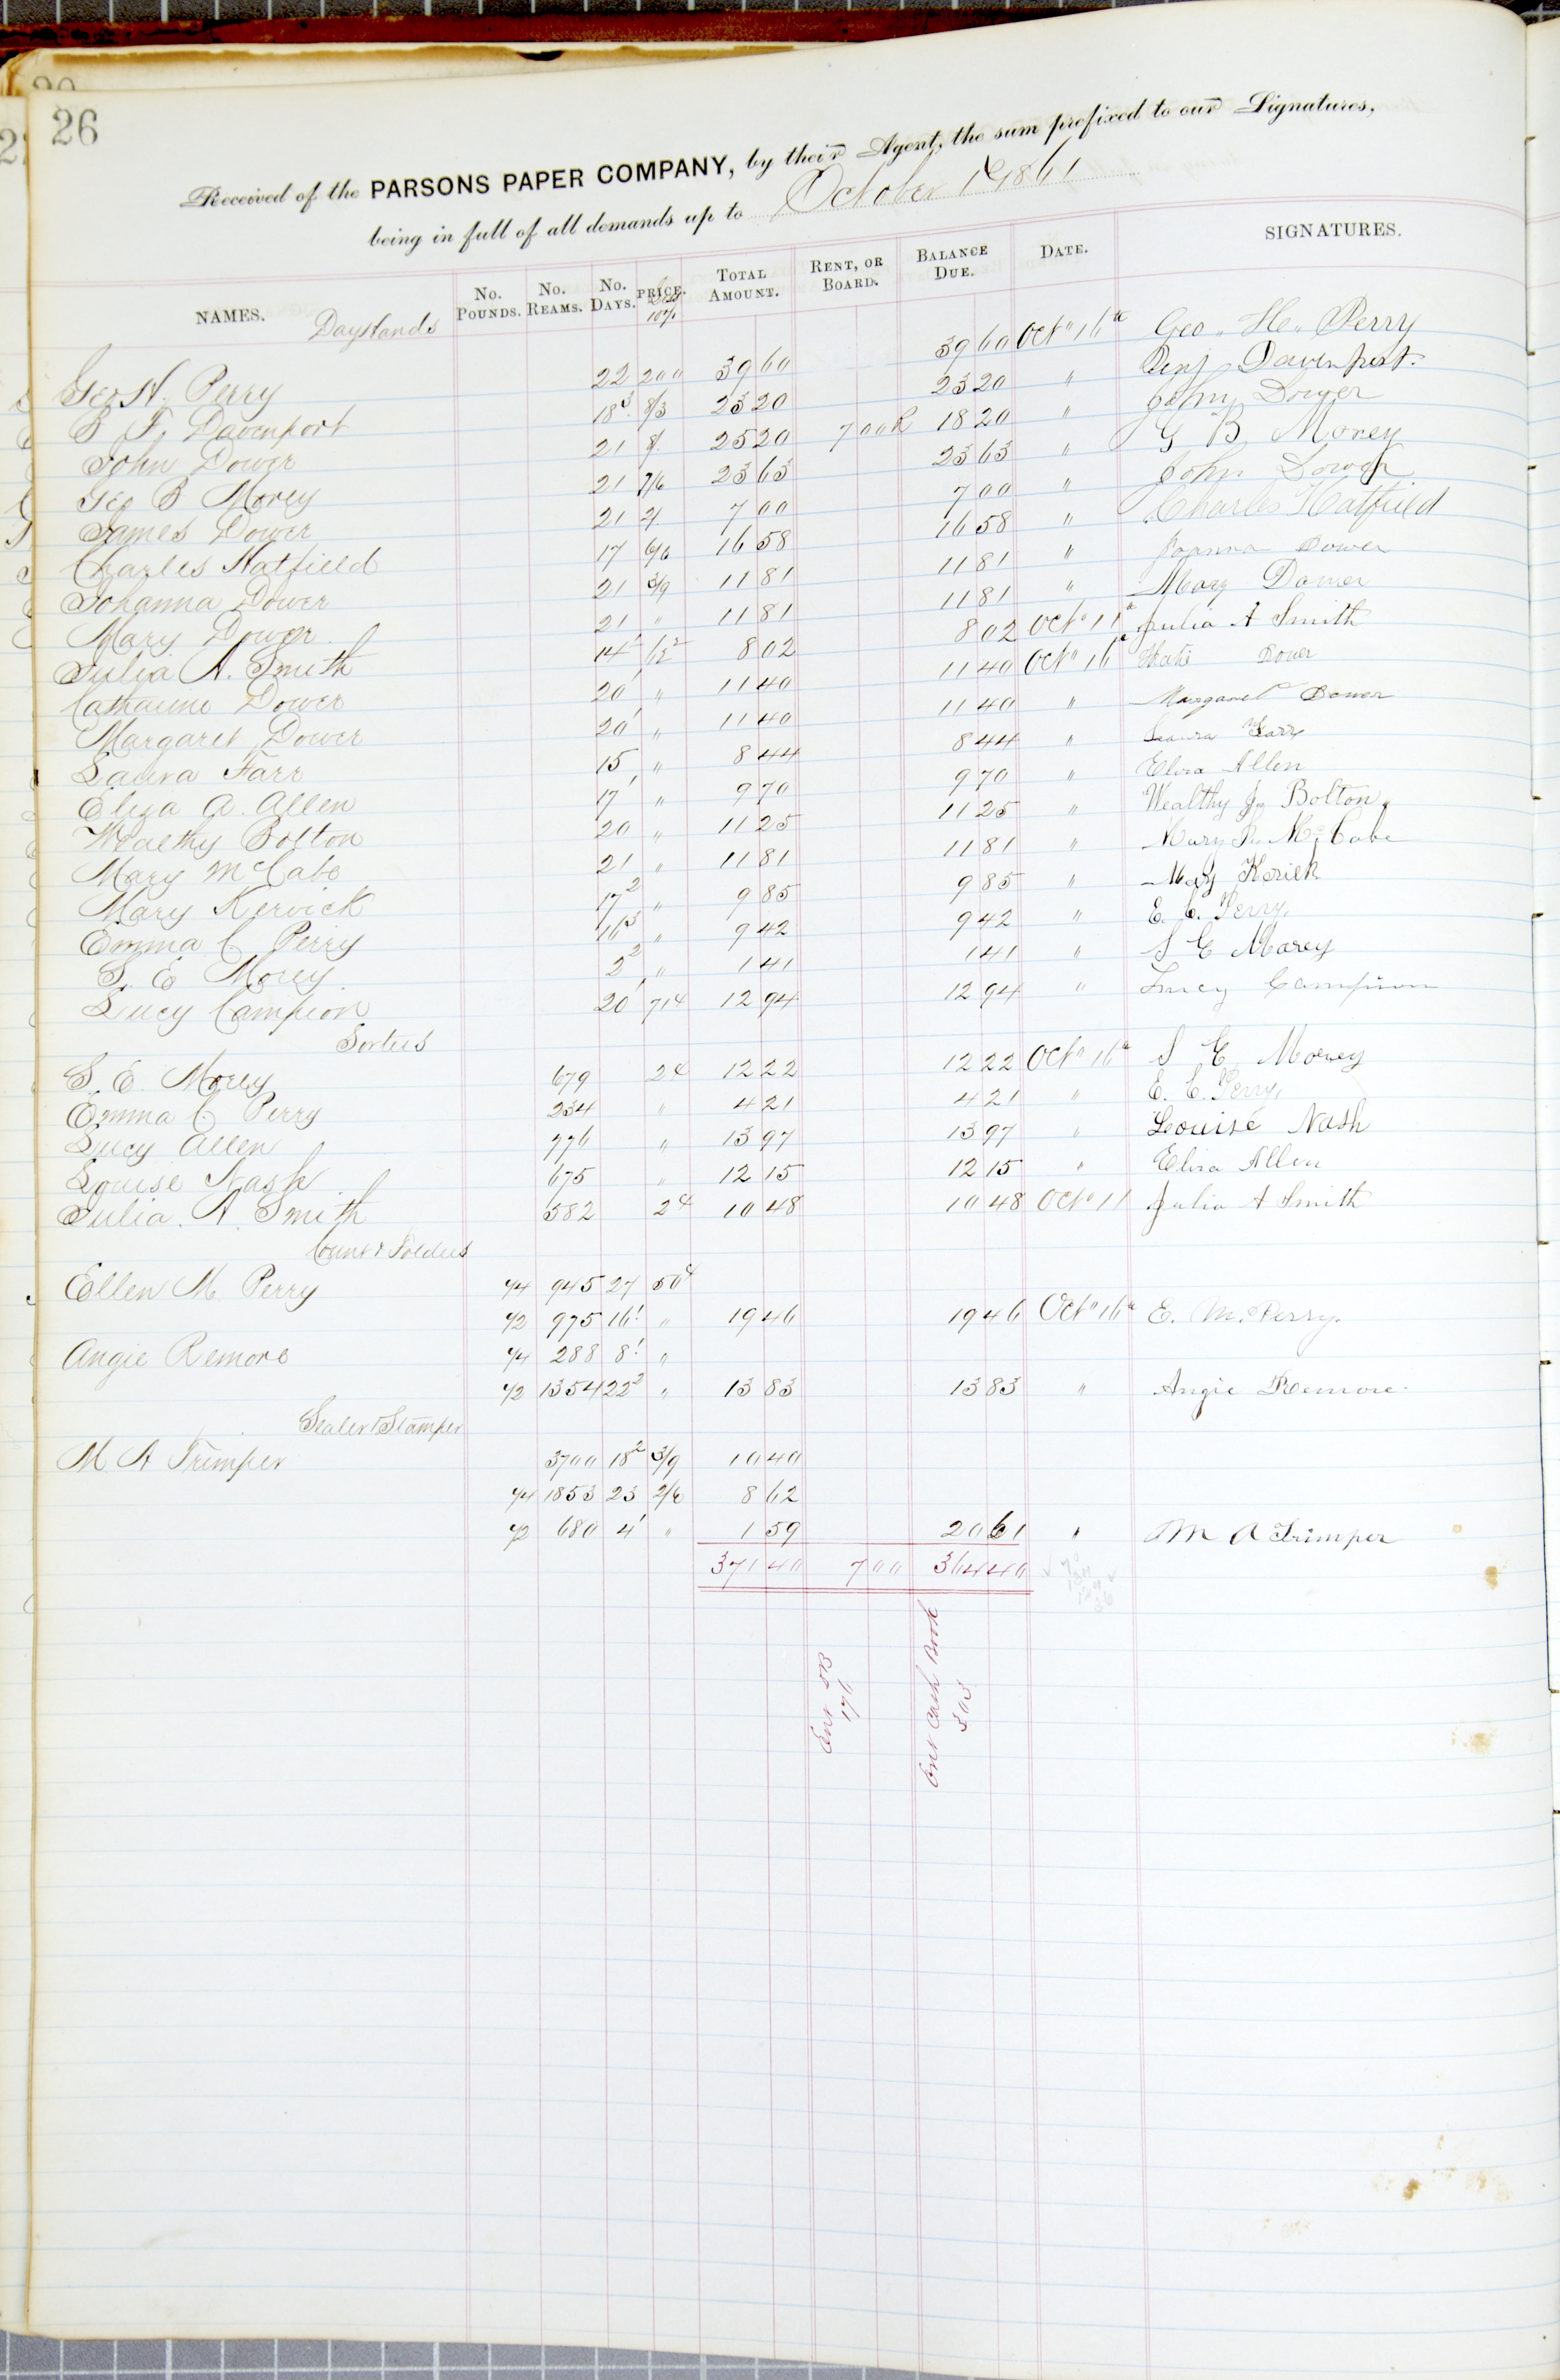 26
Received of the PARSONS PAPER COMPANY, by their Agent, the sum prefixed to our Signatures,
being in full of all demands up to October 1st 1861
NAMES. No. POUNDS. No. REAMS. No. DAYS. PRICE. TOTAL AMOUNT. RENT, OR BOARD. BALANCE DUE. DATE. SIGNATURES.
Dayshands 10%
Geo H. Perry 22 200 39 60 39 60 Oct" 16" Geo. H. Perry
B. F. Davenport 18 3 8/3 23 20 23 20 " Benj Davenport
John Dower 21 8/ 25 20 7 00 R 18 20 " John Dower
Geo B Morey 21 7/6 23 63 23 63 " G B Morey
James Dower 21 2/ 7 00 7 00 " John Dower
Charles Hatfield 17 6/6 16 58 16 58 " Charles Hatfield
Johanna Dower 21 3/9 11 81 11 81 " Joanna Dower
Mary Dower 21 " 11 81 11 81 " Mary Dower
Julia A. Smith 14 8 02 8 02 Oct" 11" Julia A Smith
Catharine Dower 20 1 " 11 40 11 40 Oct" 16" Kate Dower
Margaret Dower 20 1 " 11 40 11 40 " Margaret Dower
Laura Farr 15 " 8 44 8 44 " Laura Farr
Eliza A. Allen 17 1 " 9 70 9 70 " Elira Allen
Wealthy Bolton 20 " 11 25 11 25 " Wealthy J. Bolton
Mary McCabe 21 " 11 81 11 81 " Mary McCabe
Mary Kervick 17 2 " 9 85 9 85 " Mary Kerick
Emma C Perry 16 3 " 9 42 9 42 " E. C. Perry.
S. E Morey 2 2 " 1 41 1 41 " S E Morey
Lucy Campion 20 1 714 12 94 12 94 " Lucy Campion
Sorters
S. E. Morey 679 2¢ 12 22 12 22 Oct" 16" S E Morey
Emma C. Perry 234 " 4 21 4 21 " E. C. Perry,
Lucy Allen 776 " 13 97 13 97 " Louise Nash
Louise Nash 675 " 12 15 12 15 " Elira Allen
Julia. A. Smith 582 2¢ 10 48 10 48 Oct" 11 Julia A Smith
Count & Folders
Ellen M Perry 4/4 945 27 50¢
4/2 975 16 1 " 19 46 19 46 Oct" 16" E. M. Perry.
Angie Remore 4/4 288 8 1 "
4/2 1354 22 2 " 13 83 13 83 " Angie Remore.
Sealer & Stamper
M A Trimper 3700 18 2 3/9 10 40
4/4 1853 23 2/6 8 62
4/2 680 4 1 " 1 59 20 61 " M A Trimper
371 40 7 00 364 40
Ent DB 176
Ent Cash Book 303